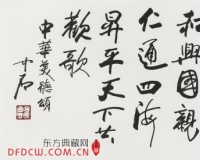 和興國覲
仁通四海
昇平天下共
歡歌
中華美德頌
东方典藏网
www.df9871.com